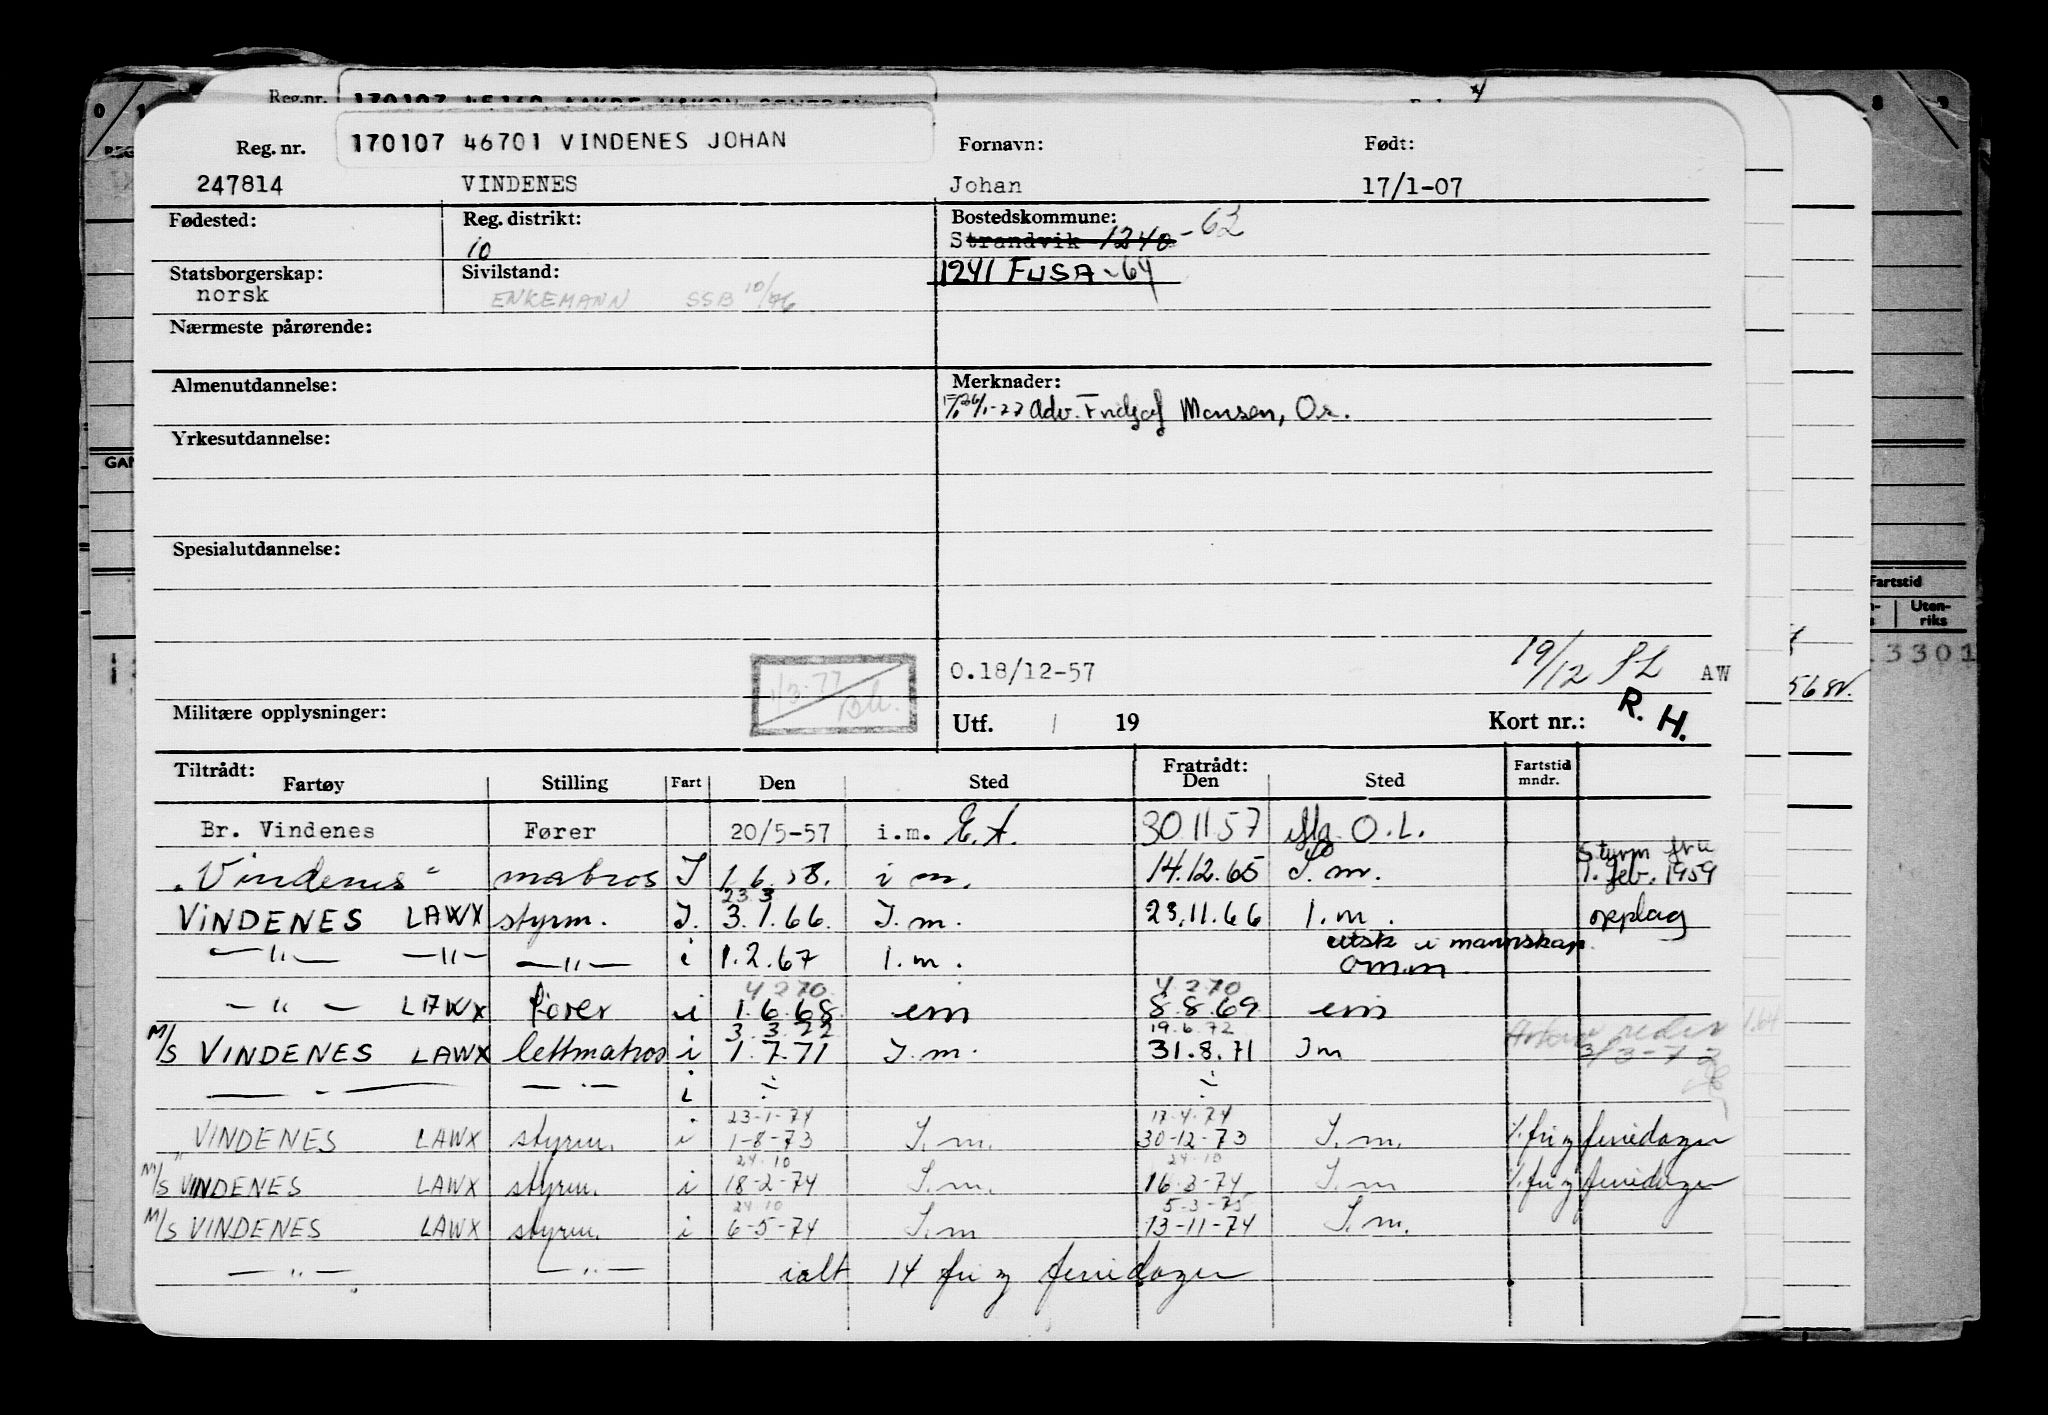 Reg. nr. 170107 46701 VINDENES JOHAN Fornavn: Født:
247814 VINDENES Johan 17/1-07
Fødested: Reg. distrikt: 10 Bostedskommune: Strandvik 1240 -62
Statsborgerskap: norsk Sivilstand: ENKEMANN SSB 10/76 1241 FUSA -64
Nærmeste pårørende:
Almenutdannelse: Merknader:
Adv. Monsen, Os.
Yrkesutdannelse:
Spesialutdannelse:
O.18/12-57 19/12 AW
Militære opplysninger: Utf. 19 Kort nr.: R. H.
Tiltrådt: Fratrådt: Fartstid
Fartøy Stilling Fart Den Sted Den Sted mndr.
Br. Vindenes Fører 20/5-57 i.m. E.A. 30.11.57 O.L.
styrm
"Vindenes" matros I 1.6.58. i m. 14.12.65 I.m. 1. feb. 1959
23.3
VINDENES LAWX styrm. I. 3.1.66. I.m. 23.11.66 I.m. opplag
utsk i mannskap.
—"— —"— —"— i 1.2.67 I.m. omm
4 2 70. 4.2.70
—"— LAWX fører i 1.6.68. em 8.8.69 em
3.3.72 19.6.72
M/S VINDENES LAWX lettmatros i 1.7.71 I.m. 31.8.71 Im 3/3-72
— - — — - — i ÷ ÷
23-1-74 17-4-74
VINDENES LAWX styrm. i 1-8-73 I.m. 30-12-73 I.m. %. fri og feriedager
24.10 24.10
M/S VINDENES LAWX styrm. i 18-2-74 I.m. 16-3-74 I.m %. fri og feriedager
24.10 5-3-75
M/S VINDENES LAWX styrm. i 6-5-74 I.m 13-11-74 I.m.
—"— —"— ialt 14 fri og feriedager